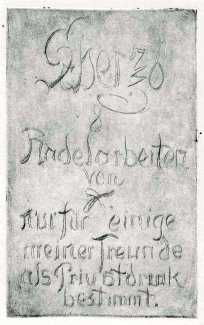 Scherzo
Radelarbeiten
von
nur für einige
meiner Freunde
als Privatdruck
bestimmt.